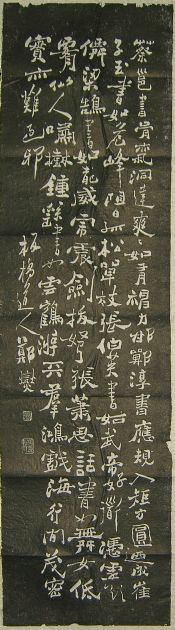 蔡邕書骨氣洞達爽〻如有神力邯鄲淳書應規入矩方圓迺成崔
子玉書如危峰阻日孤松單枝張伯英書如武帝好道憑虛欲
僊梁鵠書如龍威虎震劍拔弩張蕭思話書如舞女低
腰仙人嘯樹鍾繇書如雲鶴游天羣鴻戲海行間茂密
實亦難過耶 板橋道人鄭燮